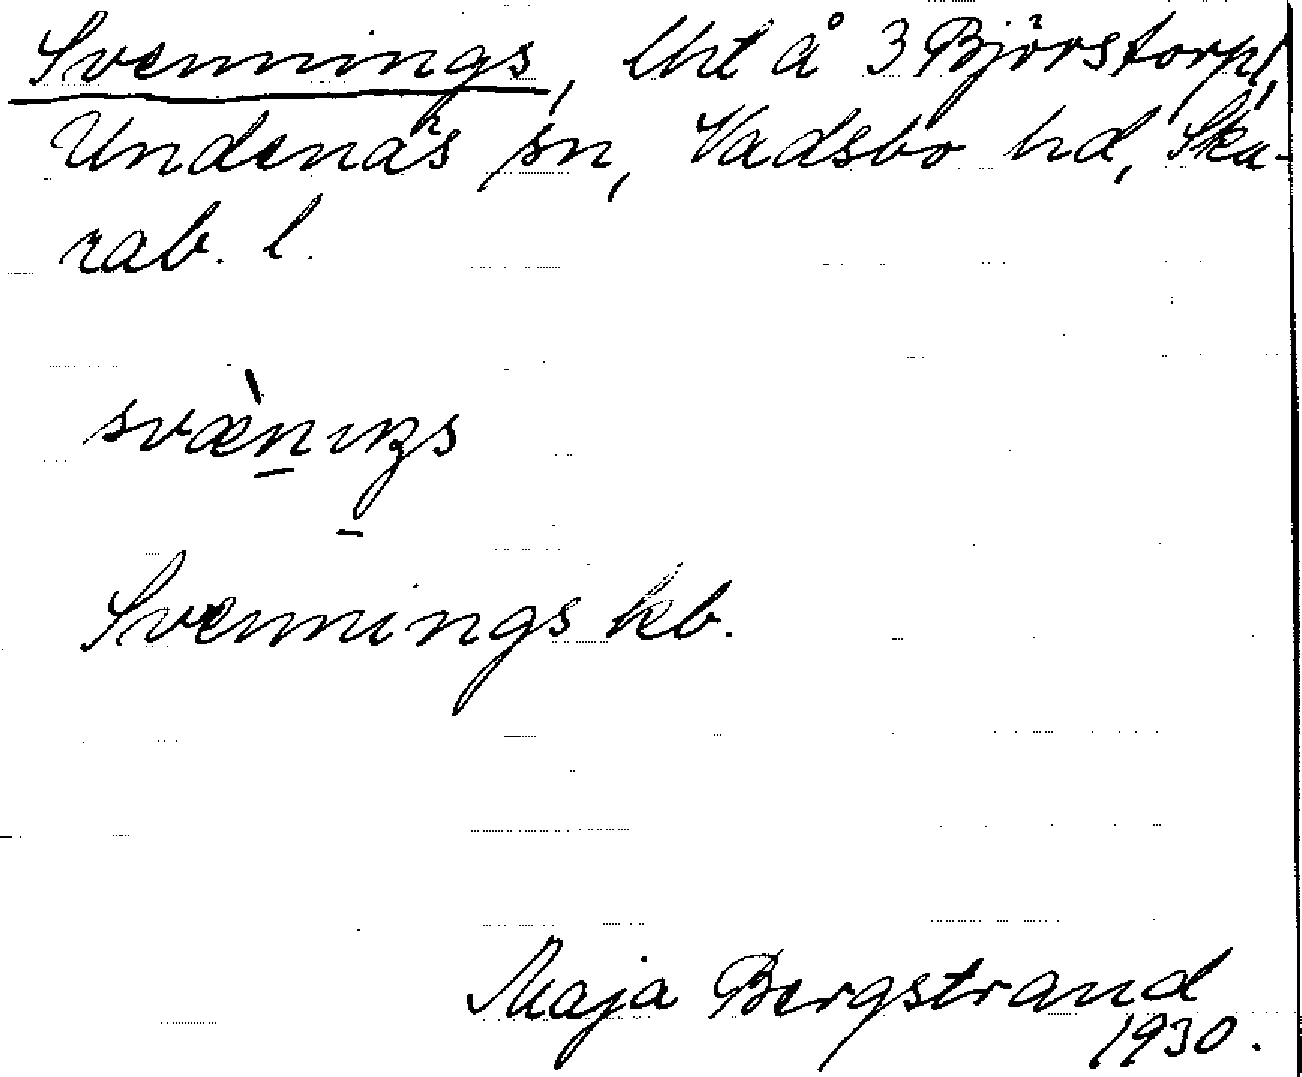 Svennings, lht å 3 Björstorp,
Undenäs sn, Vadsbo hd, Ska-
rab. l.
Svennings kb.
Maja Bergstrand
1930.